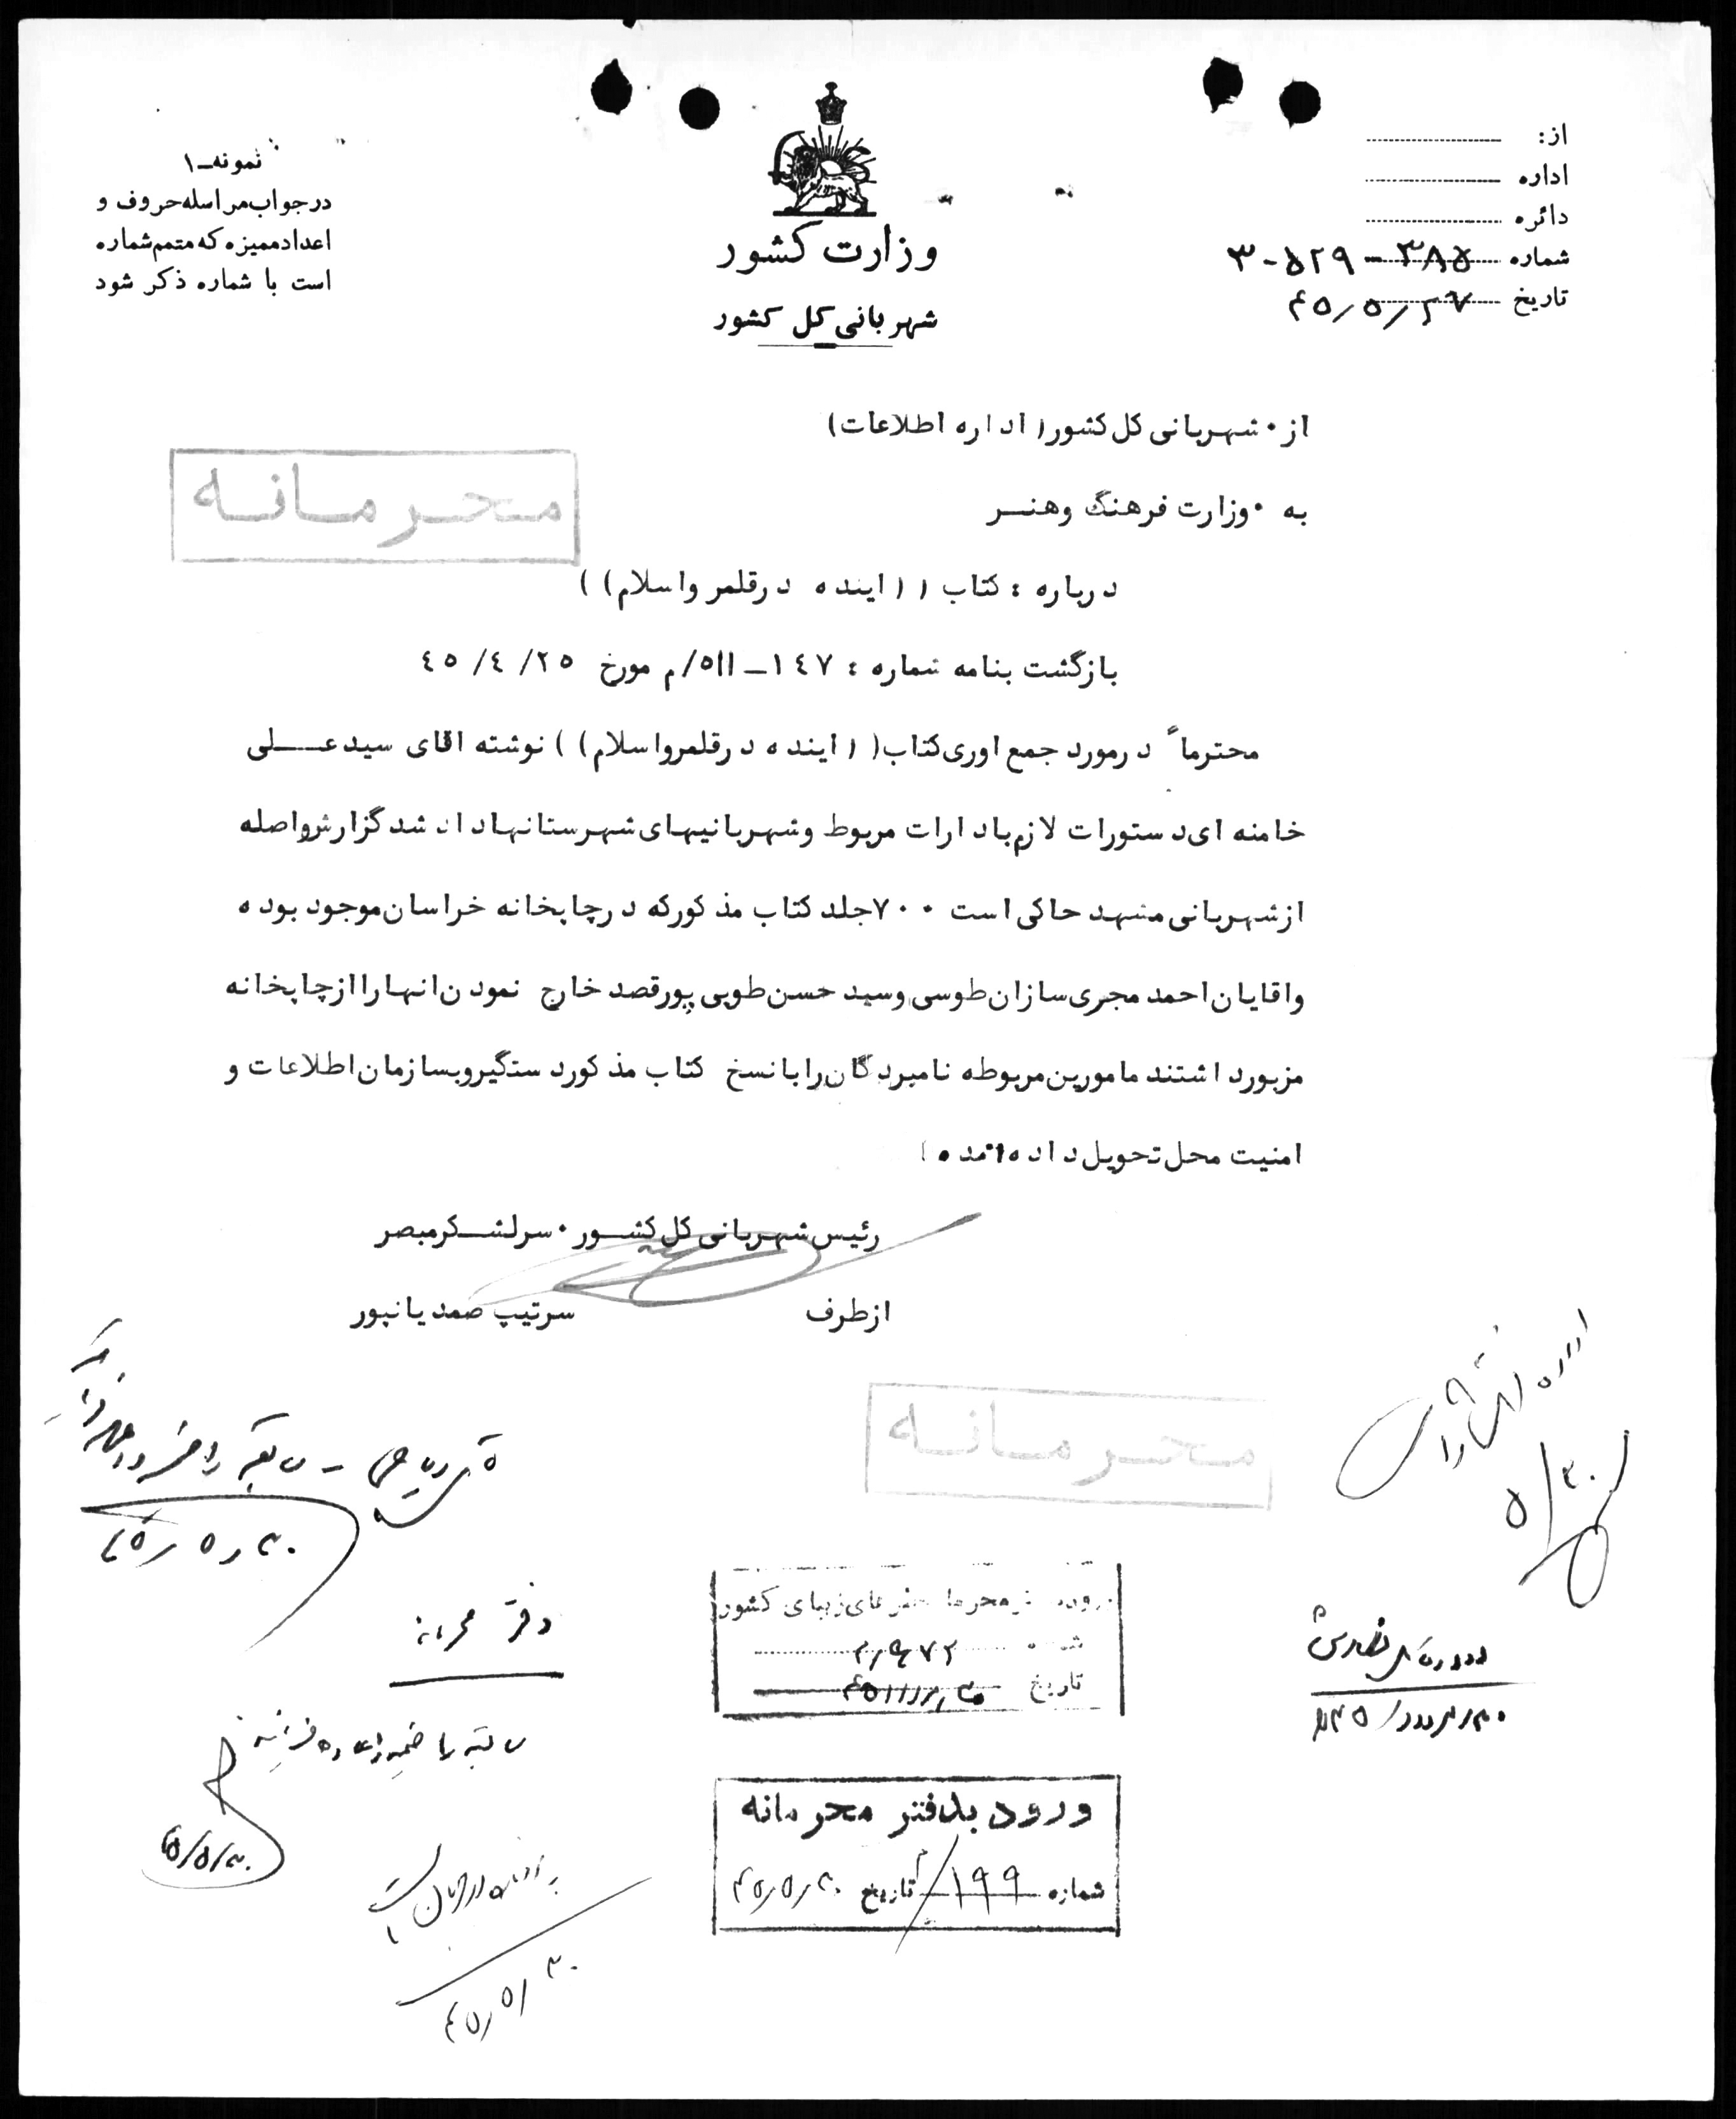 از:
اداره
دائره
شماره ۳۸۵-۵۲۹-۳
تاریخ ۴۵/۵/۲۷
وزارت کشور
شهربانی کل کشور
نمونه_۱
درجواب‌مراسله‌حروف و
اعدادممیزه‌که‌متمم‌شماره
است با شماره ذکر شود
از۰ شهربانی کل کشور( اداره اطلاعات)
محرمانه
به ۰ وزارت فرهنگ وهنر
درباره : کتاب ((اینده درقلمرواسلام))
بازگشت بنامه شماره : ۱۴۷_۵۱۱/م مورخ ۲۵/ ۴/ ۴۵
محترما" درمورد جمع اوری کتاب((اینده درقلمرواسلام)) نوشته اقای سیدعلی
خامنه ای دستورات لازم بادارات مربوط وشهربانیهای شهرستانهاداد شدگزارش‌واصله
ازشهربانی مشهد حاکی است ۷۰۰جلد کتاب مذکورکه درچاپخانه خراسان‌موجود بوده
واقایان احمد مجری‌سازان‌طوسی وسید حسن‌طوبی پورقصد خارج نمودن‌انهاراازچاپخانه
مزبورداشتند مامورین‌مربوطه نامبردگان‌رابانسخ کتاب مذکوردستگیروبسازمان‌اطلاعات و
امنیت محل‌تحویل‌داده
رئیس‌شهربانی کل کشور۰ سرلشکرمبصر
ازطرف سرتیپ صمدیانپور
محرمانه
۵/۳۰
۴۵/۵/۳۰
دفتر محرمانه
زیبای کشور
تاریخ
ورود بدفتر محرمانه
شماره ۱۹۹/م تاریخ ۴۵/۵/۳۰
۴۵/۵/۳۰
۴۵/۵/۳۰